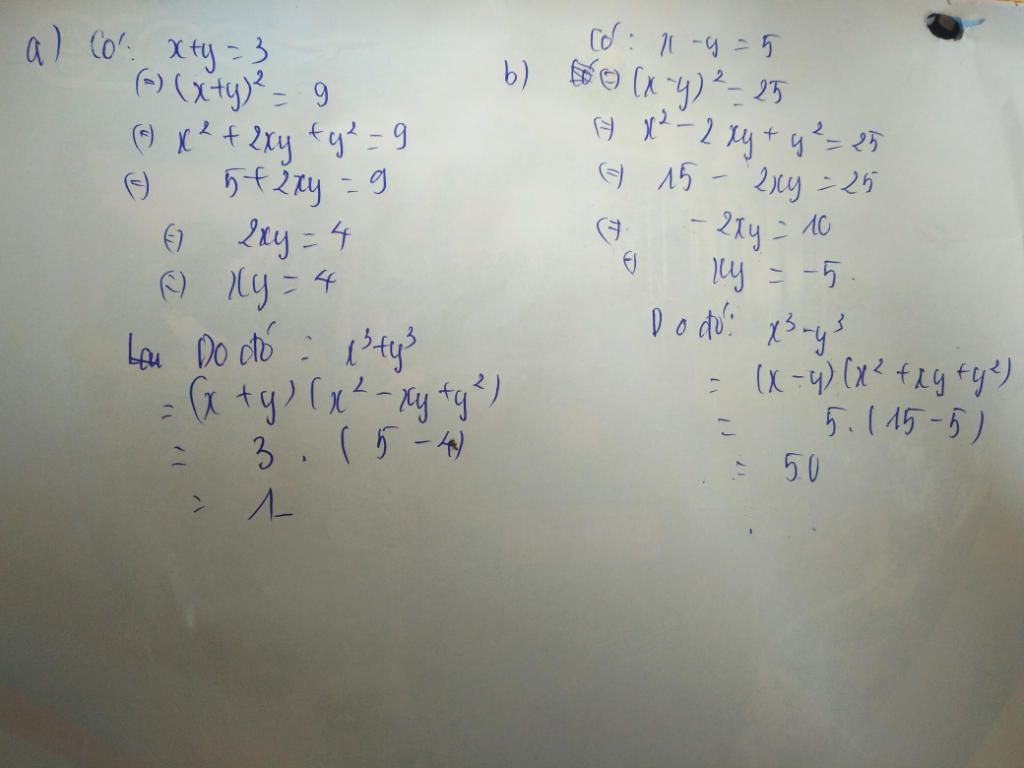 a) Có: x+y = 3
(=) (x+y)² = 9
(=) x² + 2xy + y² = 9
(=) 5+2xy = 9
(=) 2xy = 4
(=) xy = 4
Do đó : x³+y³
= (x + y) (x² - xy + y²)
= 3 . ( 5 - 4)
= 1
Có : x - y = 5
b) (=) (x - y)² = 25
(=) x² - 2xy + y² = 25
(=) 15 - 2xy = 25
(=) - 2xy = 10
(=) xy = -5.
Do đó: x³ - y³
= (x - y) (x² + xy + y²)
= 5. ( 15 - 5)
= 50